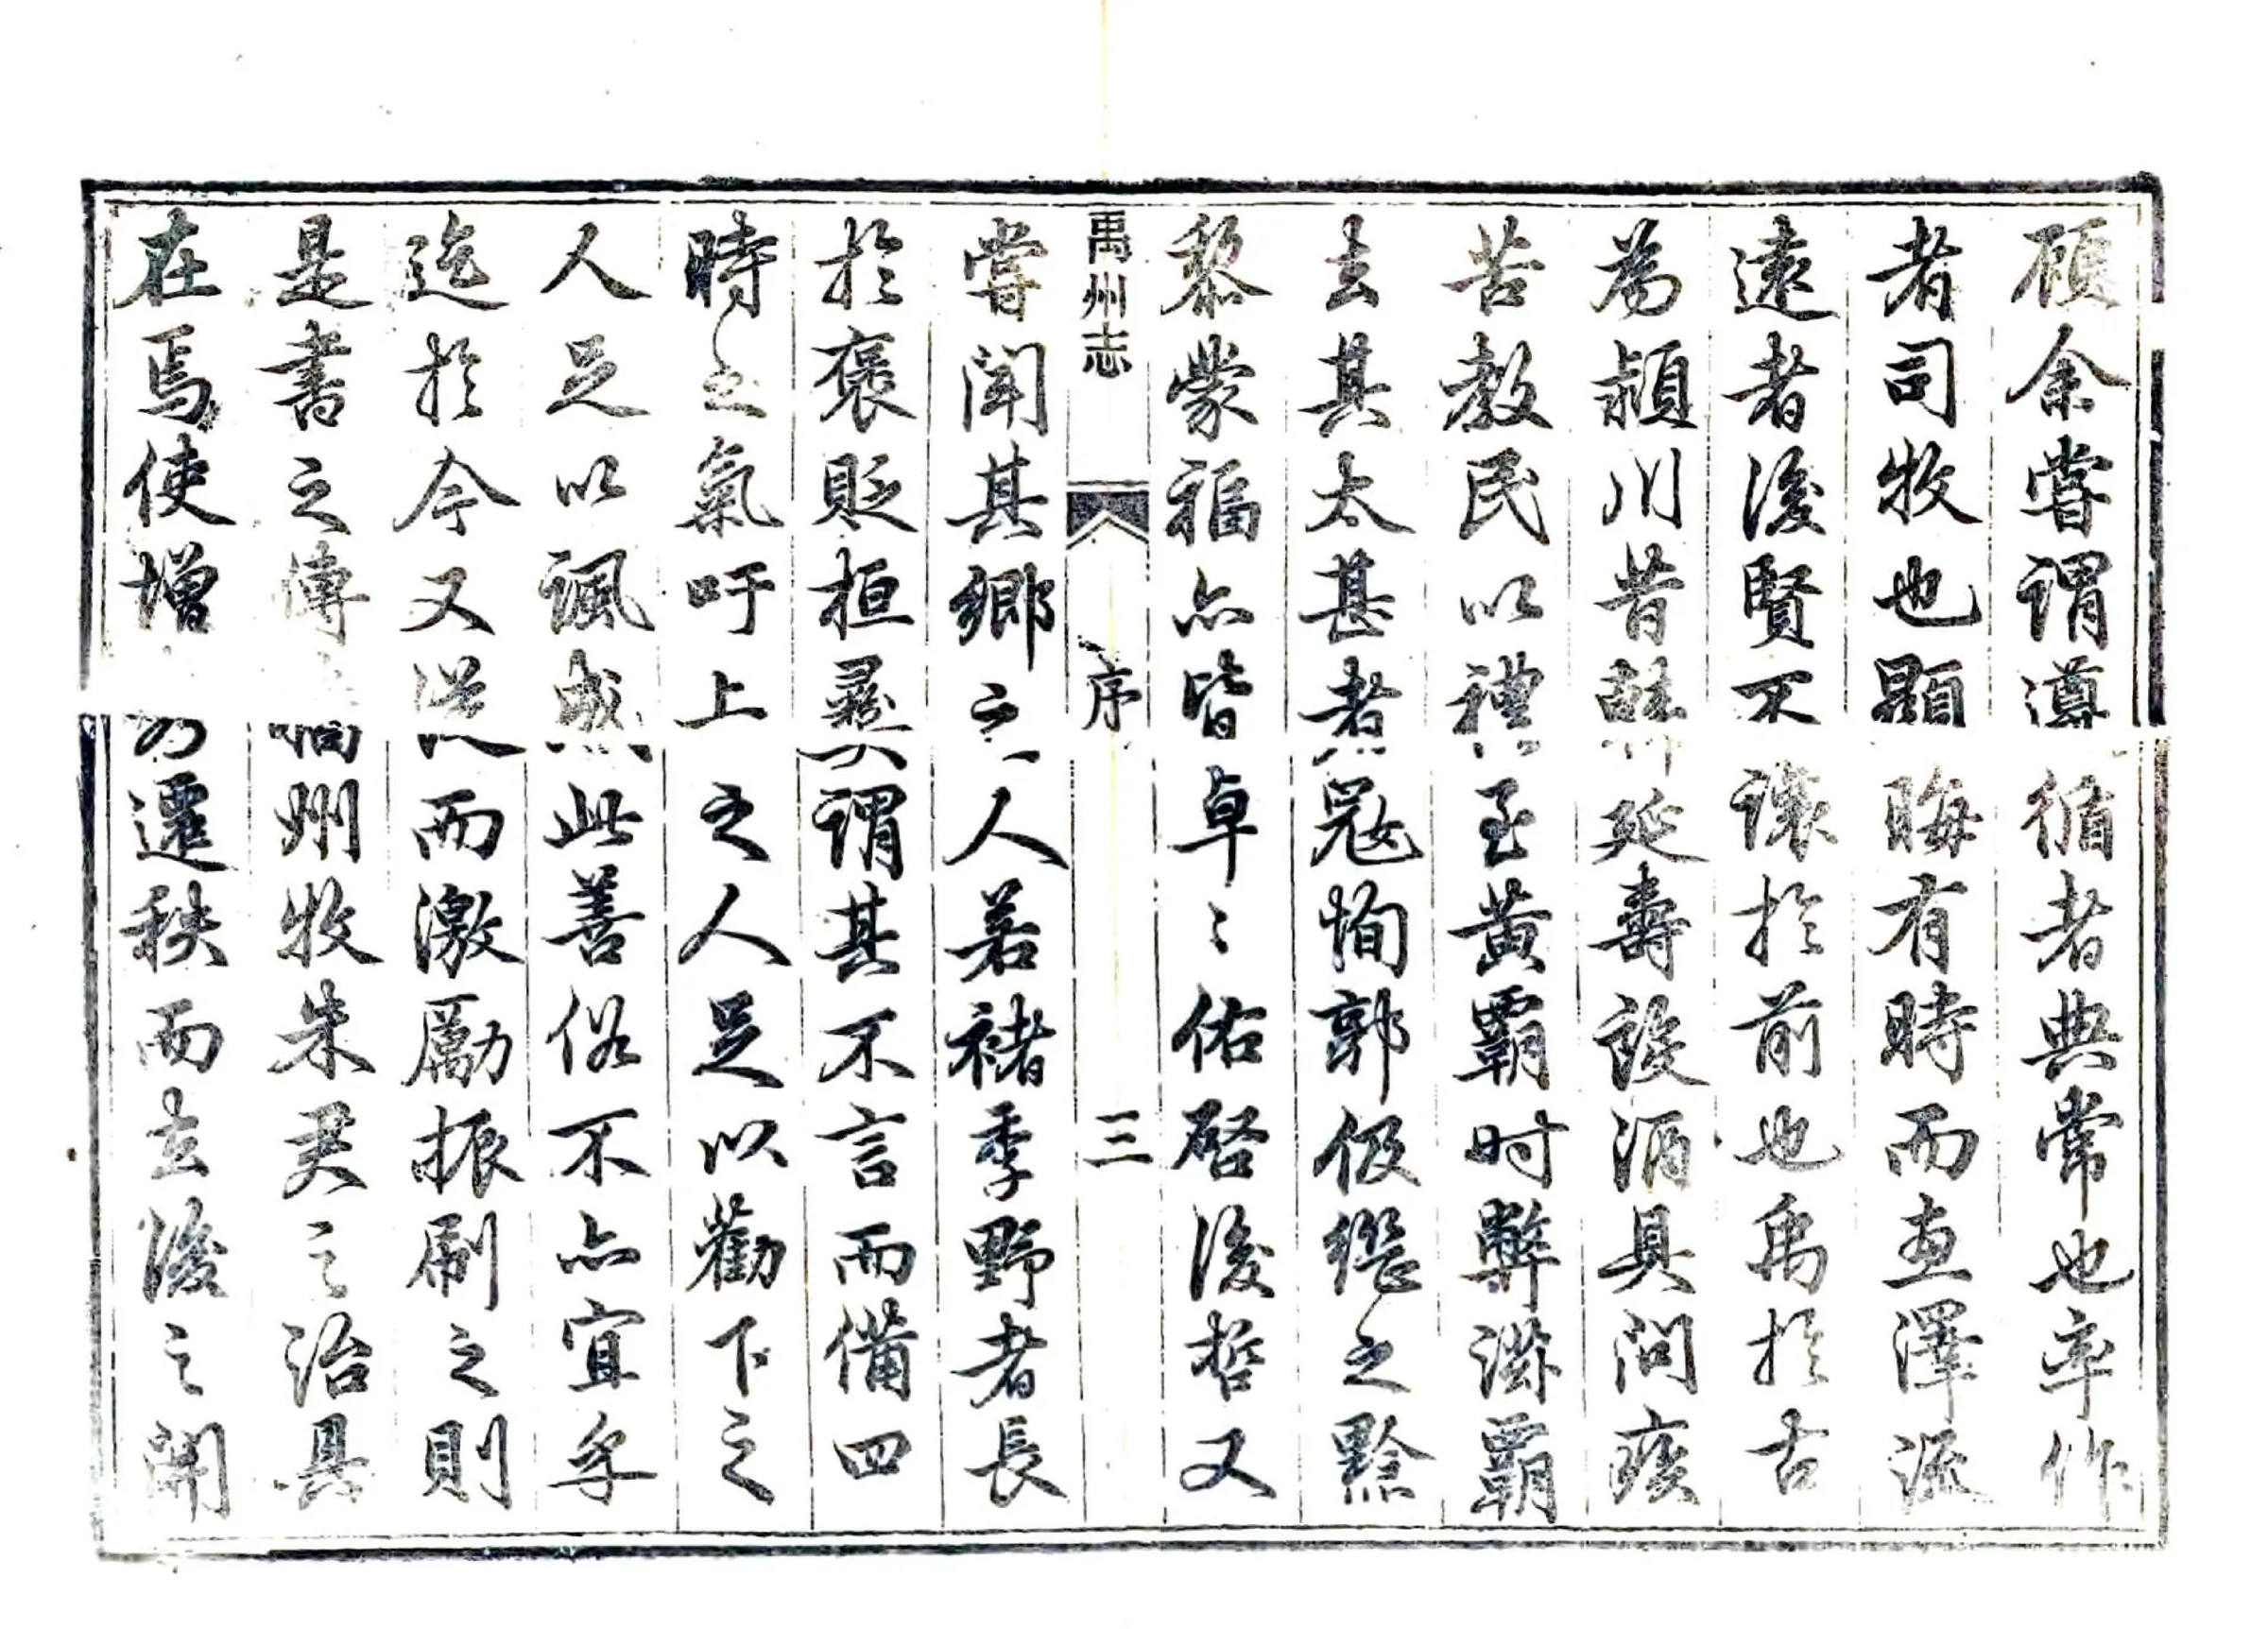 顧余嘗謂遵循者典常也率作
者司牧也顯晦有時而惠澤流
遠者後賢不讓於前也禹於古
為潁川昔韓延壽設酒具問疾
苦教民以禮至黃霸时弊滋霸
去其太甚者寇恂郭伋繼之黔
黎蒙福亦皆卓〻佑啓後哲又
禹州志 序 三
嘗聞其鄉之人若褚季野者長
於褒貶桓彝謂其不言而備四
時之氣吁上之人足以勸下之
人足以諷此善俗不亦宜乎
迄於今又從而激厲振刷之則
是書之傳州牧朱君之治具
在焉使增遷秩而去後之聞